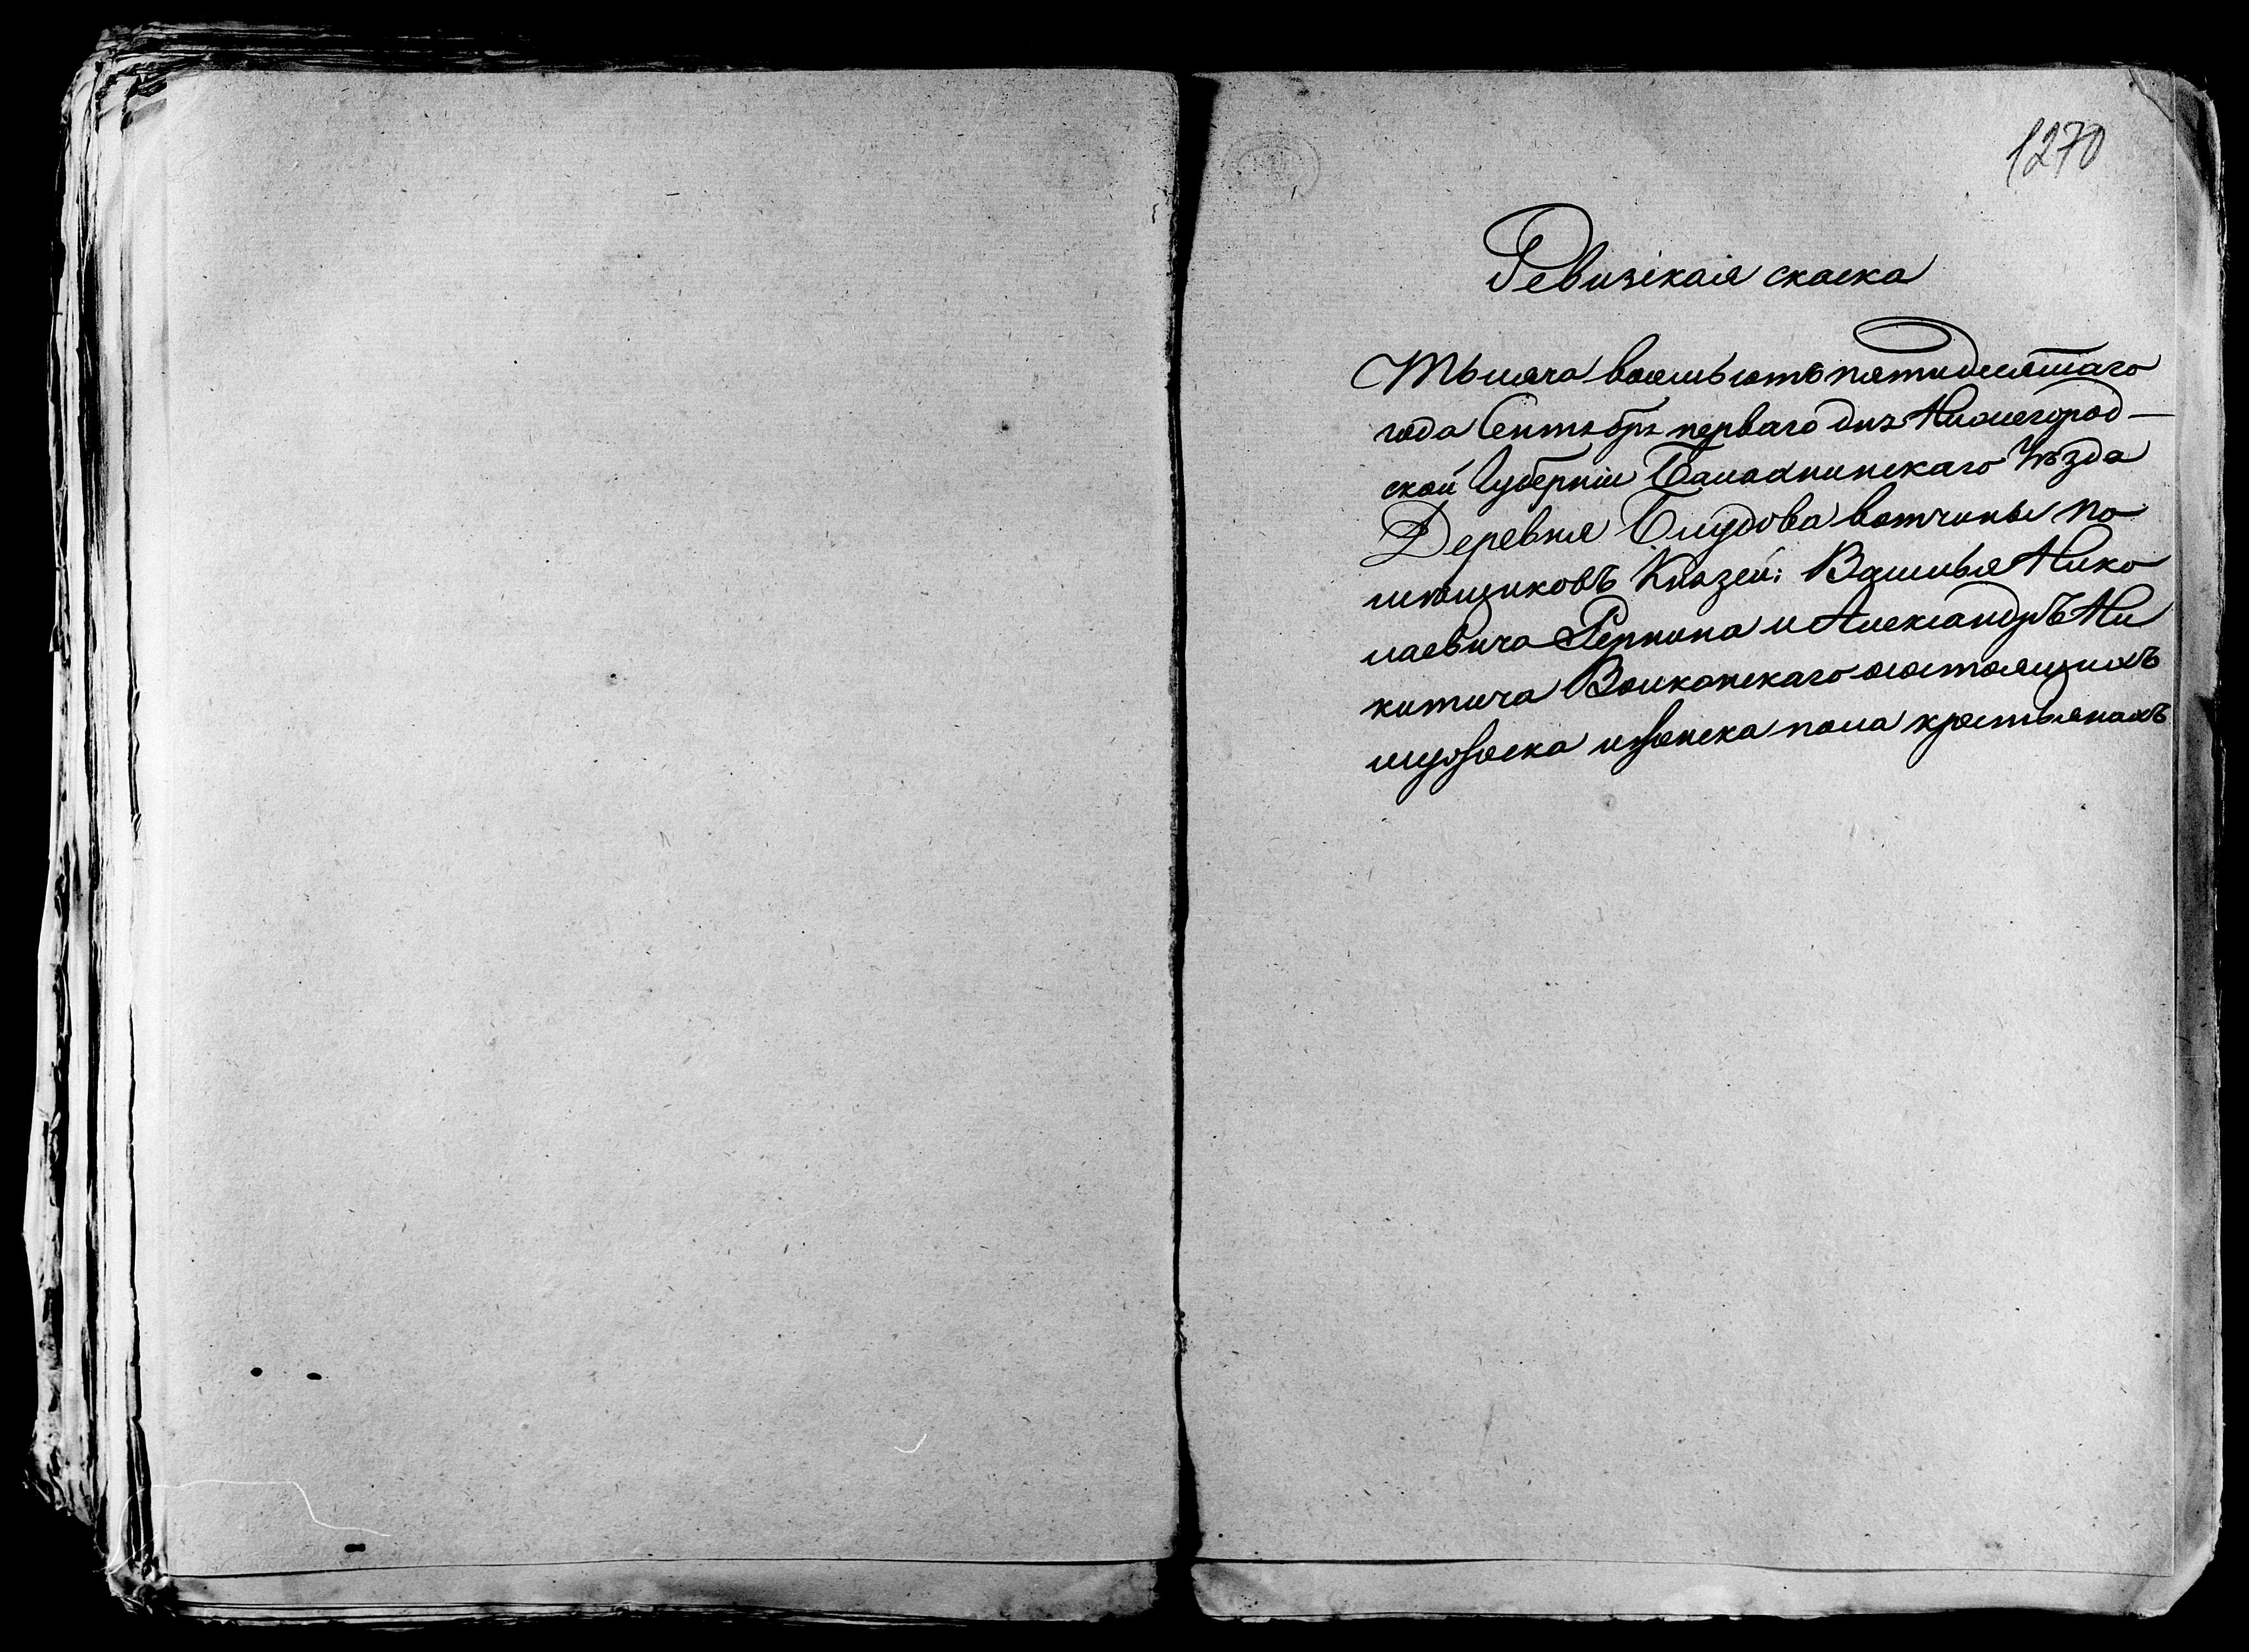 1270
Ревизская скаска
Тысяча восемьсотъ пятидесятаго
года Сентября перваго дня Нижегород-
ской Губерніи Балахнинскаго Уѣзда
Деревня Блудова вотчины по
мѣщиковъ Князей: Василья Нико
лаевича Репнина и Александръ Ни
китича Волконскаго о состоящихъ
мужеска и женска пола крестьянахъ